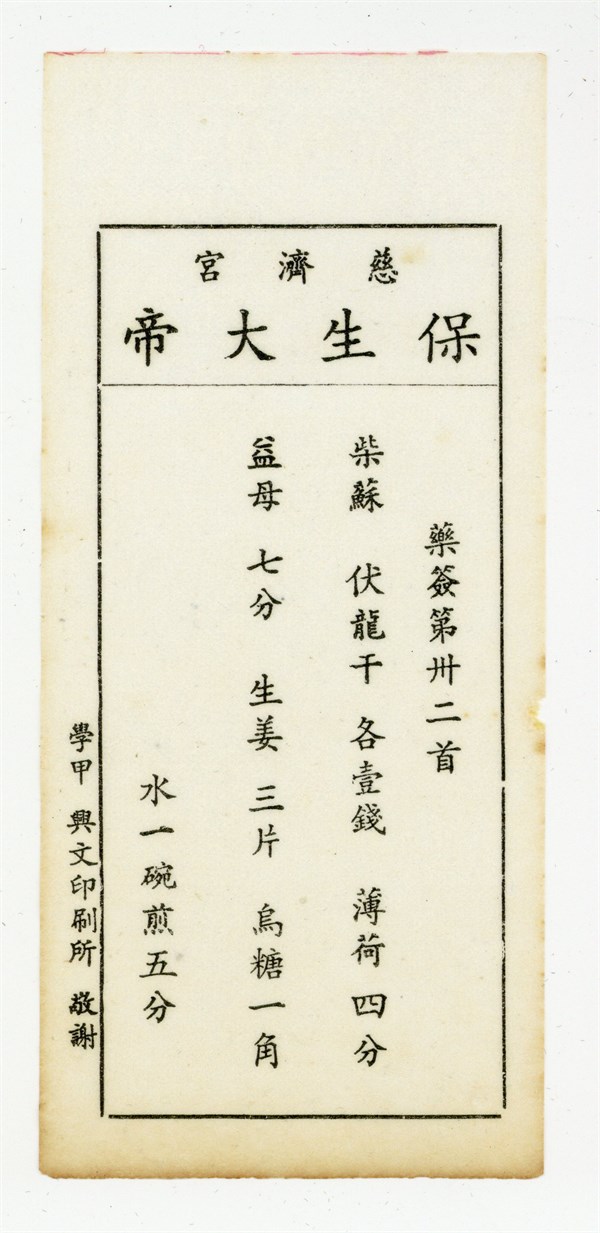 慈濟宮
保生大帝
藥簽第卅二首
柴蘇 伏龍干 各壹錢 薄荷 四分
益母 七分 生姜 三片 烏糖一角
水一碗煎五分
學甲 興文印刷所 敬謝